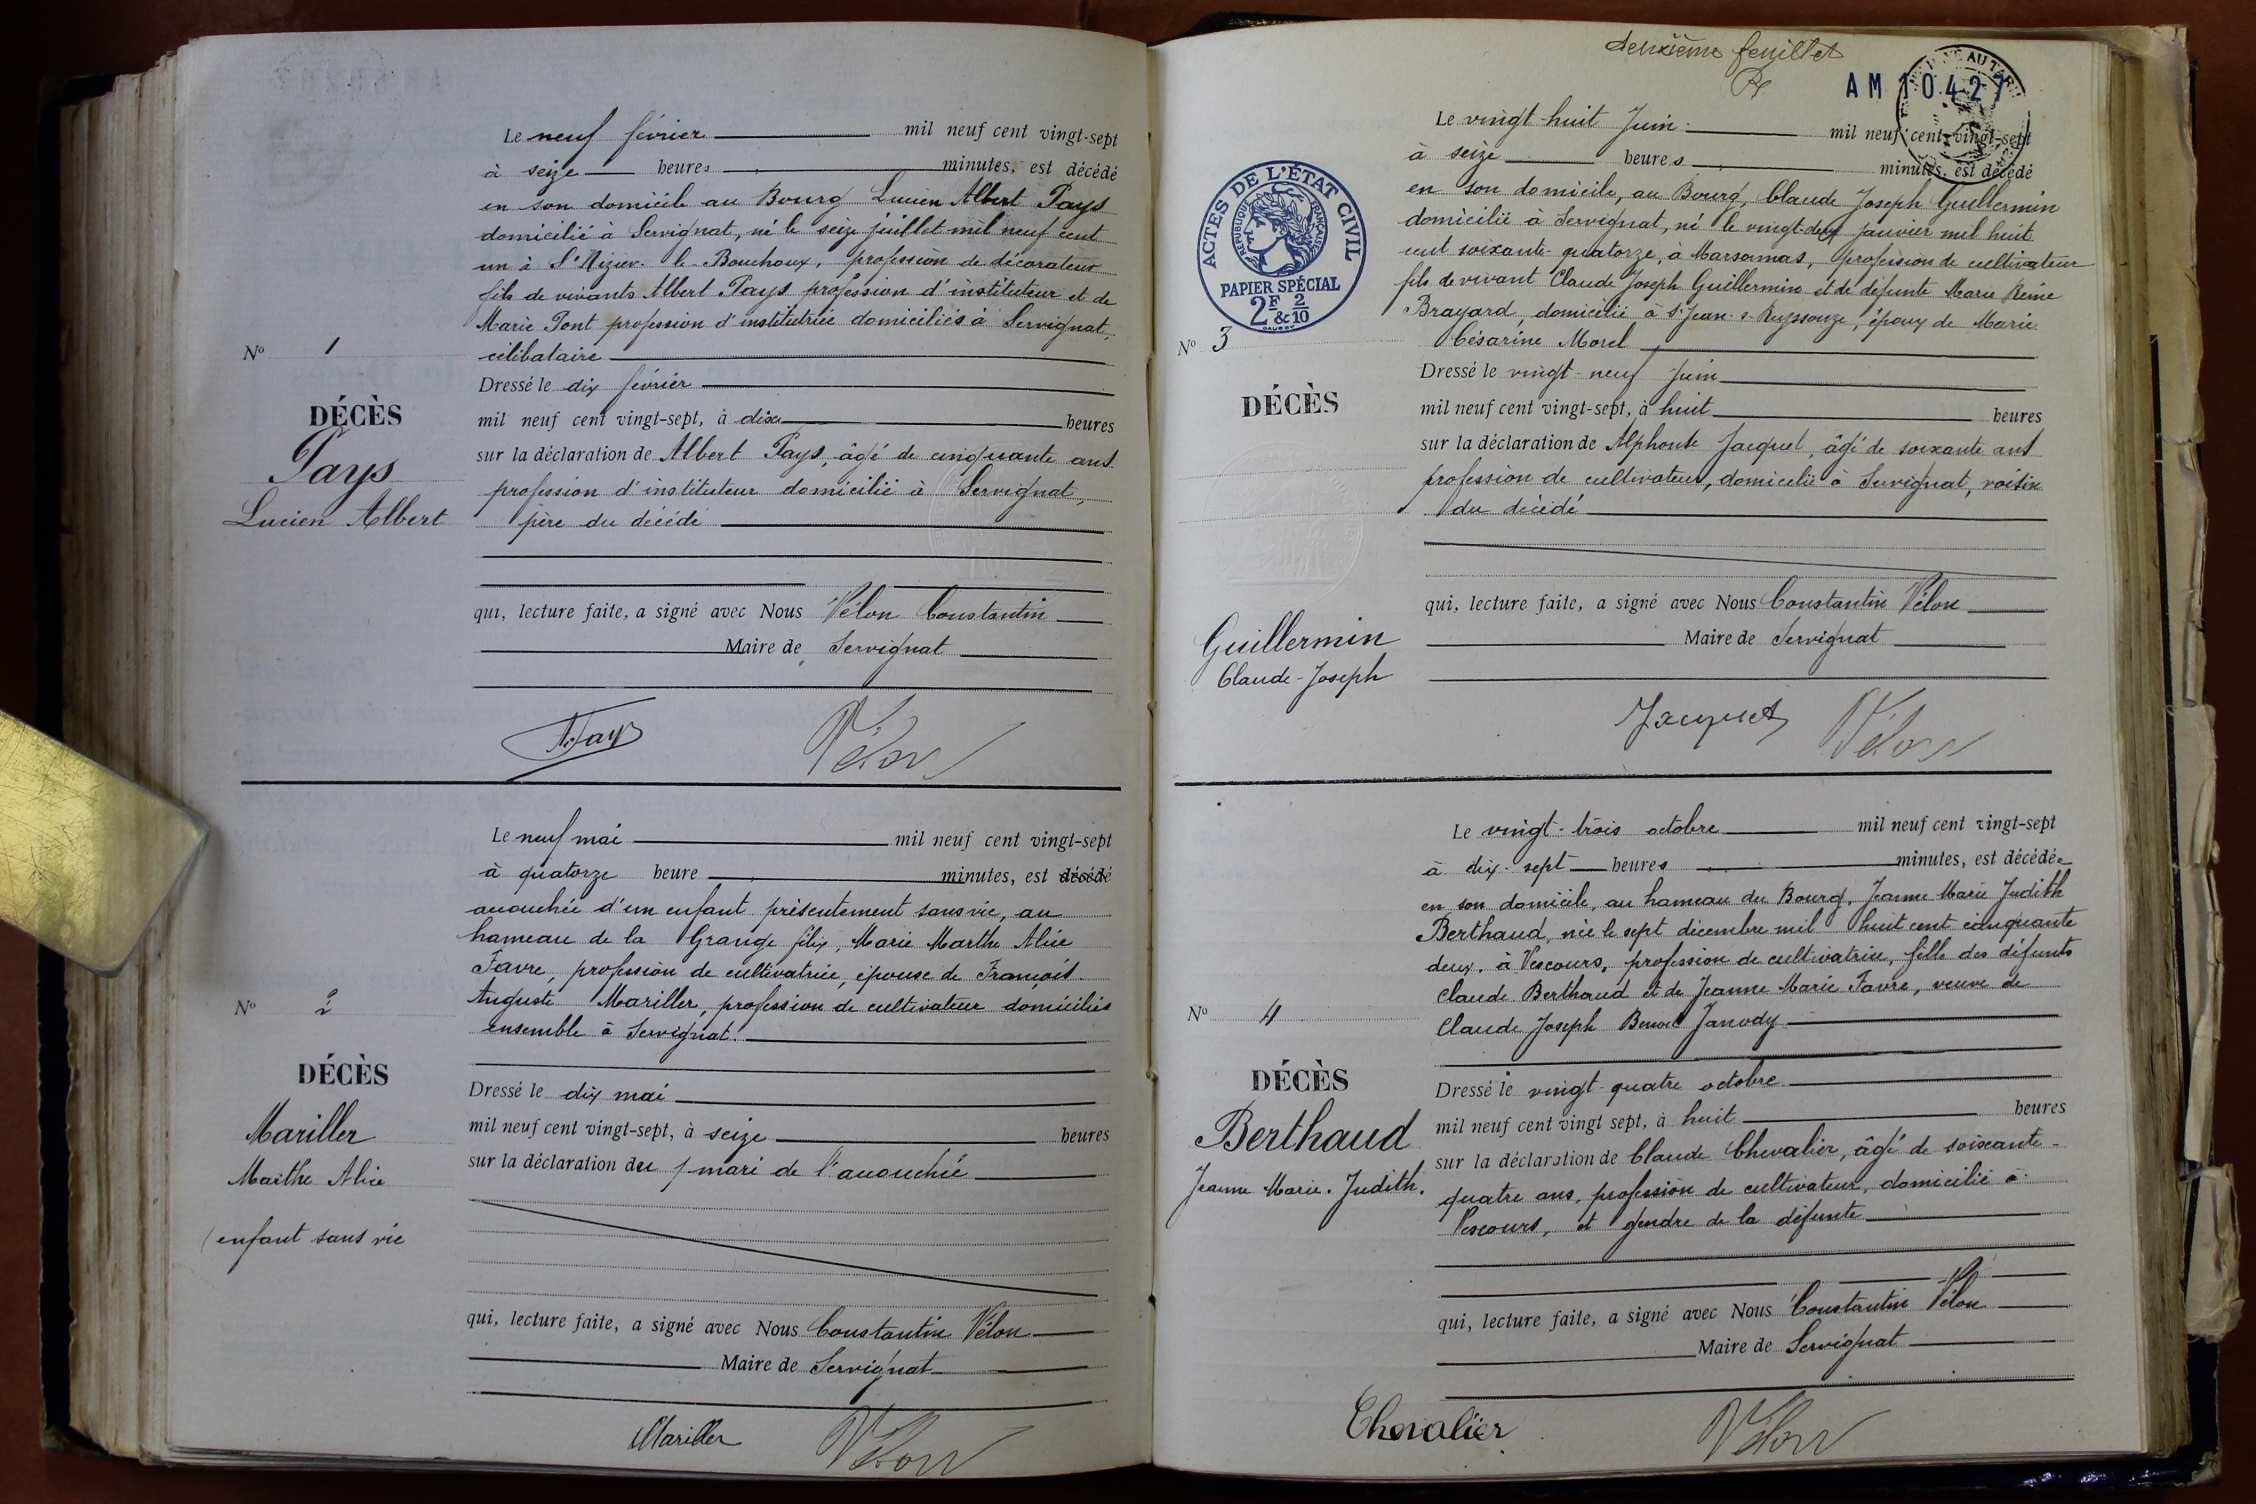 Le neuf février mil neuf cent vingt-sept
à seize heures minutes, est décédé
en son domicile au Bourg Lucien Albert Pays
domicilié à Servignat, né le seize juillet mil neuf cent
un à St Nizier-le-Bouchoux, profession de décorateur
fils de vivants Albert Pays profession d'instituteur et de
Marie Pont profession d'institutrice domiciliés à Servignat,
célibataire
Nº 1
Dressé le dix février
DÉCÈS
mil neuf cent vingt-sept, à dix heures
Pays
sur la déclaration de Albert Pays, âgé de cinquante ans
profession d'instituteur domicilié à Servignat,
Lucien Albert
père du décédé
qui, lecture faite, a signé avec Nous Vélon Constantin
Maire de Servignat
A. Pays Vélon
Le neuf mai mil neuf cent vingt-sept
à quatorze heure minutes, est décédé
accouchée d'un enfant présentement sans vie, au
hameau de la Grange félix, Marie Marthe Alice
Favre, profession de cultivatrice, épouse de François
Auguste Mariller, profession de cultivateur domiciliés
Nº 2
ensemble à Servignat.
DÉCÈS
Dressé le dix mai
Mariller
mil neuf cent vingt-sept, à seize heures
Marthe Alice
sur la déclaration du mari de l'accouchée
(enfant sans vie
qui, lecture faite, a signé avec Nous Constantin Vélon
Maire de Servignat
Mariller Vélon
deuxième feuillet
AM 10427
Le vingt-huit Juin mil neuf cent vingt-sept
à seize heures minutes, est décédé
en son domicile, au Bourg, Claude Joseph Guillermin
domicilié à Servignat, né le vingt-deux janvier mil huit
cent soixante-quatorze, à Marsonnas, profession de cultivateur
fils de vivant Claude Joseph Guillermin et de défunte Marie Reine
Brayard, domicilié à St Jean-s-Reyssouze, époux de Marie
Césarine Morel
ACTES DE L'ÉTAT CIVIL
RÉPUBLIQUE FRANÇAISE
PAPIER SPÉCIAL
2F & 2/10
Nº 3
Dressé le vingt-neuf Juin
DÉCÈS
mil neuf cent vingt-sept, à huit heures
sur la déclaration de Alphonse Jacquet, âgé de soixante ans
profession de cultivateur, domicilié à Servignat, voisin
du décédé
qui, lecture faite, a signé avec Nous Constantin Vélon
Guillermin
Maire de Servignat
Claude-Joseph
Jacquet Vélon
Le vingt-trois octobre mil neuf cent vingt-sept
à dix-sept heures minutes, est décédée
en son domicile, au hameau du Bourg, Jeanne Marie Judith
Berthaud, née le sept décembre mil huit cent cinquante
deux, à Vescours, profession de cultivatrice, fille des défunts
Claude Berthaud et de Jeanne Marie Favre, veuve de
Nº 4
Claude Joseph Benoit Janody
DÉCÈS
Dressé le vingt-quatre octobre
Berthaud
mil neuf cent vingt sept, à huit heures
sur la déclaration de Claude Chevalier, âgé de soixante-
Jeanne Marie-Judith.
quatre ans, profession de cultivateur, domicilié à
Vescours, et gendre de la défunte
qui, lecture faite, a signé avec Nous Constantin Vélon
Maire de Servignat
Chevalier Vélon